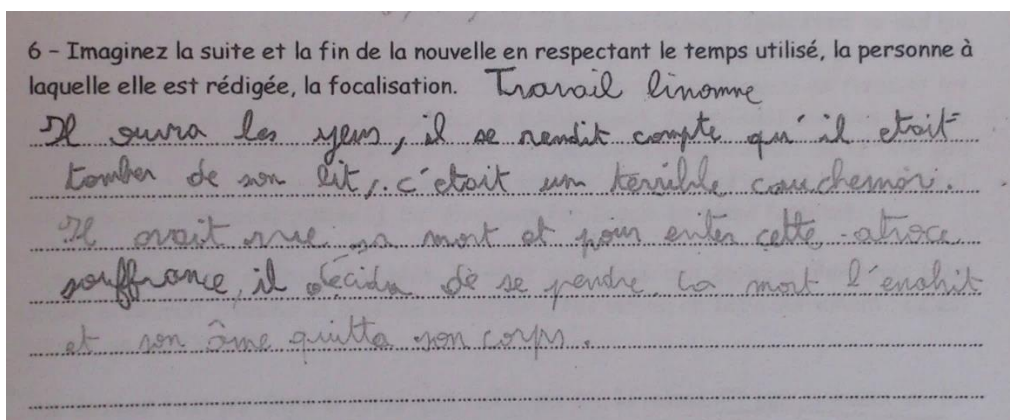 6 - Imaginez la suite et la fin de la nouvelle en respectant le temps utilisé, la personne à
laquelle elle est rédigée, la focalisation. Travail
Il ouvra les yeus, il se rendit compte qu'il etait
tomber de son lit, c'etait um terrible cauchemar.
Il avait vue sa mort et pour eviter cette atroce
souffrance, il décida de se pendre. La mort l'enahit
et son âme quitta son corps.